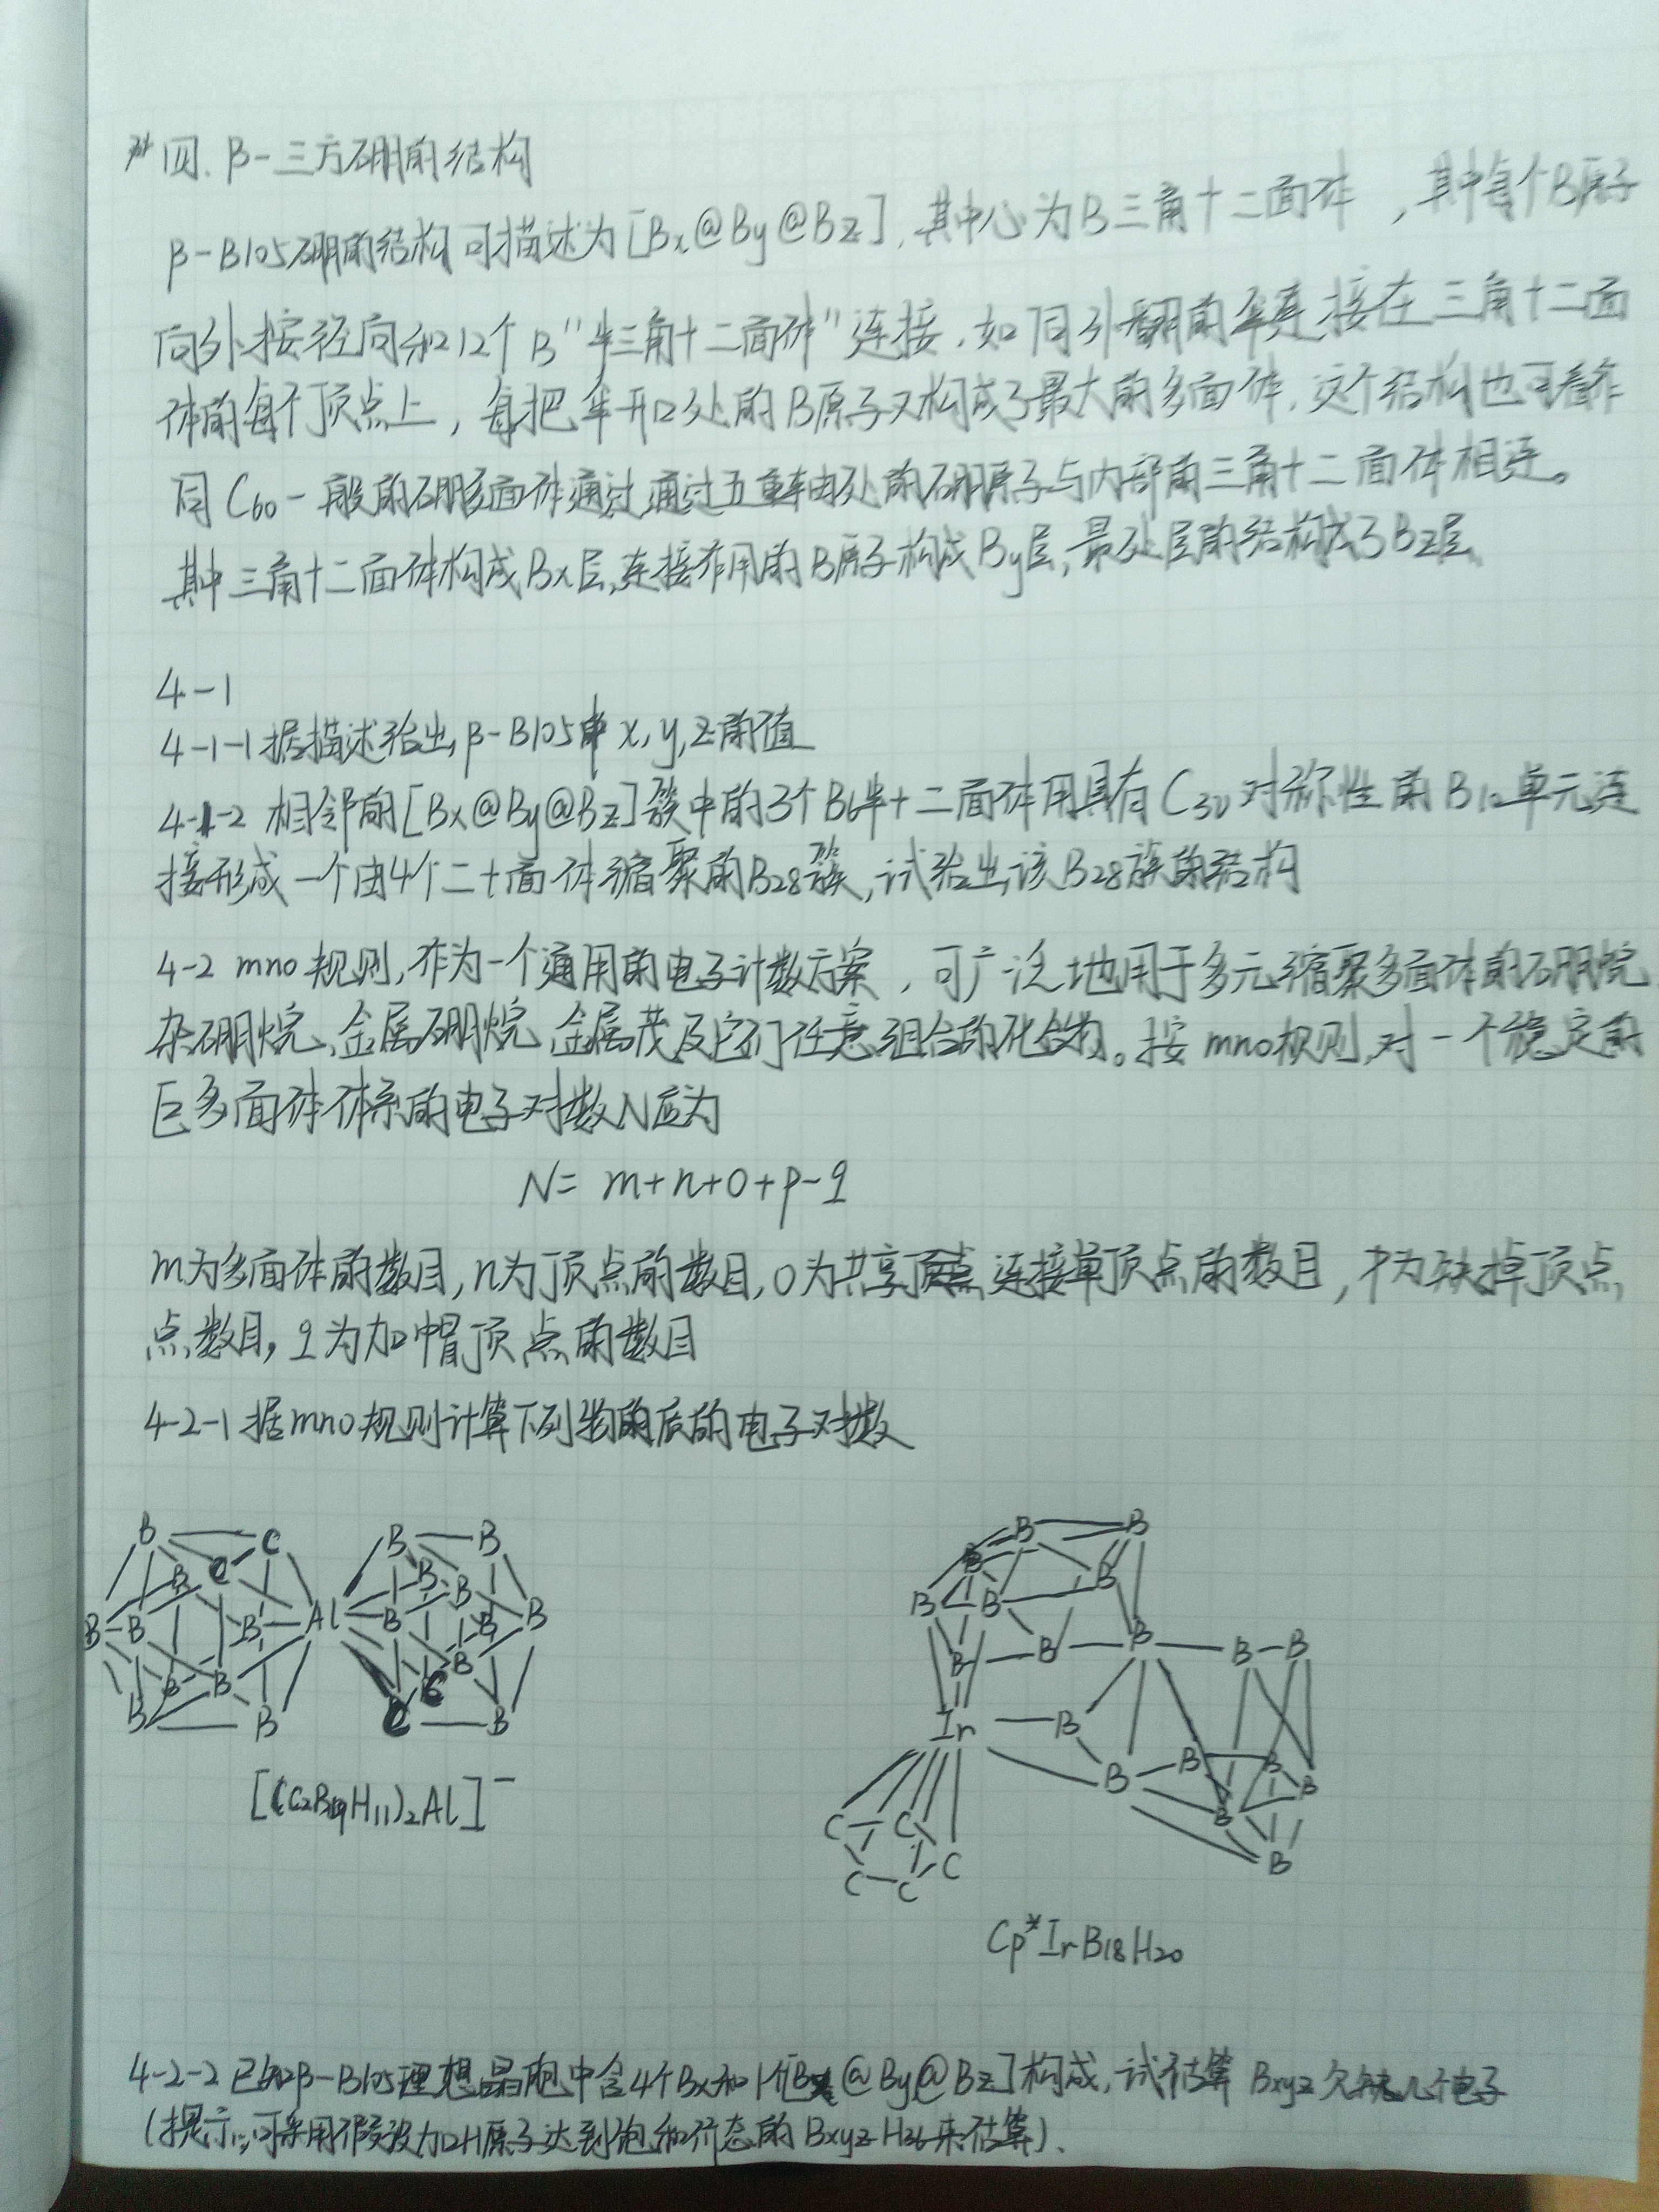 四. β-三方硼的结构
β-B105硼的结构可描述为[Bx@By@Bz], 其中心为B三角十二面体, 其中每个B原子
向外按径向和12个B"半三角十二面体"连接. 如同外翻的伞连接在三角十二面
体的每个顶点上, 每把伞开口处的B原子又构成了最大的多面体. 这个结构也可看作
同C60一般的硼多面体通过通过五重轴处的硼原子与内部的三角十二面体相连。
其中三角十二面体构成Bx层,连接作用的B原子构成By层,最外层的结构成了Bz层
4-1
4-1-1据描述给出β-B105中x,y,z的值
4-1-2 相邻的[Bx@By@Bz]簇中的3个B6半十二面体用具有C3v对称性的B12单元连
接形成一个由4个二十面体缩聚的B28簇,试给出该B28簇的结构
4-2 mno规则,作为一个通用的电子计数方案, 可广泛地用于多元缩聚多面体的硼烷
杂硼烷、金属硼烷、金属茂及它们任意组合的化合物。按mno规则,对一个稳定的
巨多面体体系的电子对数N应为
N= m+n+o+p-q
m为多面体的数目,n为顶点的数目,o为共享顶点连接单顶点的数目, p为缺掉顶点
点数目, q为加帽顶点的数目
4-2-1据mno规则计算下列物的电子对数
B C B B
C B B B
B B B Al B B B
B B B
B B C C B
[(C2B9H11)2Al]⁻
B B
B B
B B
B B B B B
Ir B
B B B B
B
B
C C
C C C
Cp*IrB18H20
4-2-2 已知β-B105理想晶胞中含4个Bx和1个[Bx@By@Bz]构成, 试估算Bxyz欠缺几个电子
(提示:可采用假设加H原子达到饱和价态的BxyzH36来估算).